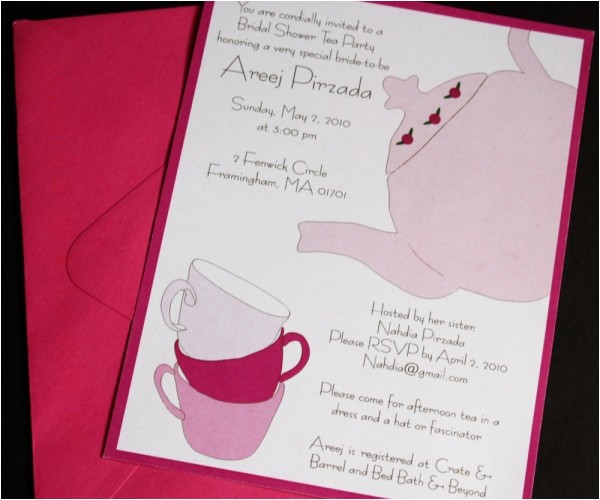 You are cordially invited to a
Bridal Shower Tea Party
honoring a very special bride-to-be
Areej Pirzada
Sunday, May 2, 2010
at 3:00 pm
2 Fenwick Circle
Framingham, MA 01701
Hosted by her sister:
Nahdia Pirzada
Please RSVP by April 2, 2010
Nahdia@gmail.com
Please come for afternoon tea in a
dress and a hat or fascinator
Areej is registered at Crate &
Barrel and Bed Bath & Beyond